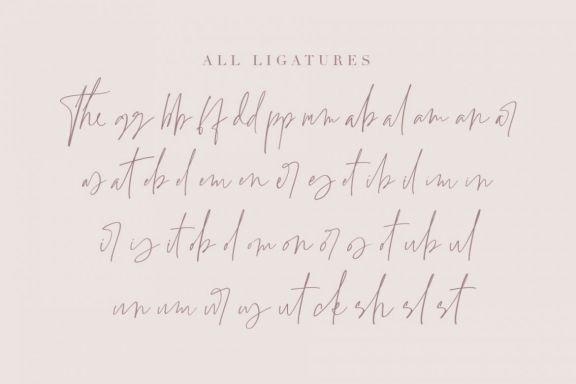 ALL LIGATURES
The gg bb ff dd pp mm ab al am an or
as at eb el em en er es et ib il im in
ir is it ob ol om on or os ot ub ul
un um ur us ut ck sh sl st